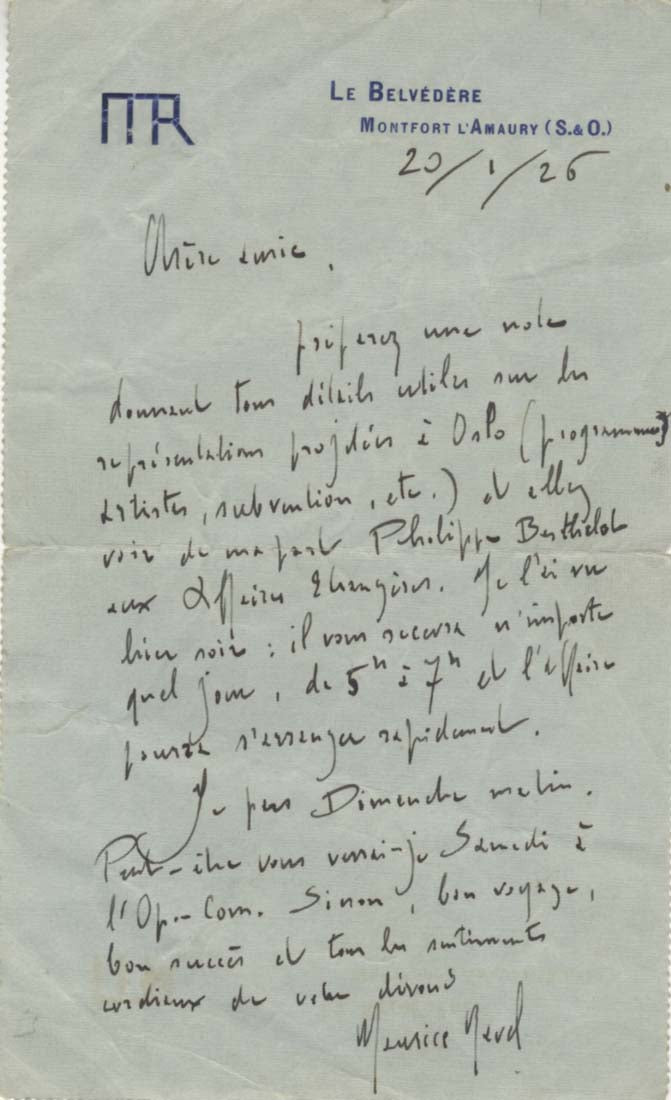 MR
LE BELVÉDÈRE
MONTFORT L'AMAURY (S.&O.)
20/1/26
Chère amie,
préparez une note
donnant tous détails utiles sur les
représentations projetées à Oslo (programmes,
artistes, subvention, etc.) et allez
voir de ma part Philippe Berthelot
aux Affaires Etrangères. Je l'ai vu
hier soir : il vous recevra n'importe
quel jour, de 5h à 7h et l'affaire
pourra s'arranger rapidement.
Je pars Dimanche matin.
Peut-être vous verrai-je Samedi à
l'Op.-Com. Sinon, bon voyage,
bon succès et tous les sentiments
cordiaux de votre dévoué
Maurice Ravel